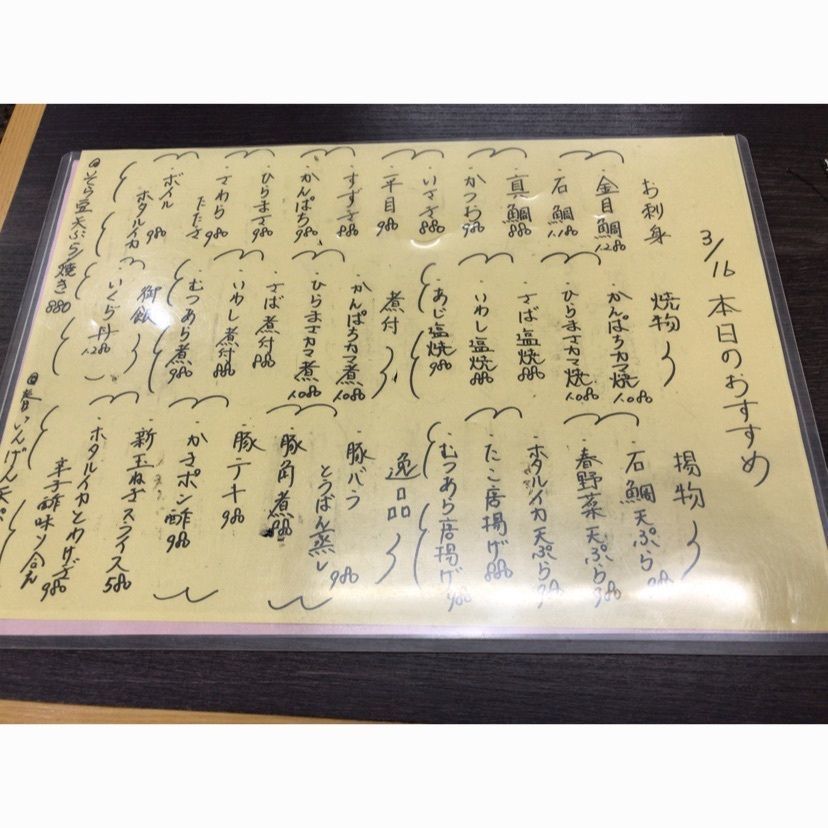 3/16 本日のおすすめ
お刺身
・金目鯛 1,280
・石鯛 1,180
・真鯛 880
・かつお 980
・いさき 880
・平目 980
・すずき 980
・かんぱち 980
・ひらまさ 980
・さわら たたき 980
・ボイル ホタルイカ 980
焼物
・かんぱちカマ焼 1,080
・ひらまさカマ焼 1,080
・さば塩焼 880
・いわし塩焼 880
・あじ塩焼 980
煮付
・かんぱちカマ煮 1,080
・ひらまさカマ煮 1,080
・さば煮付 880
・いわし煮付 880
・むつあら煮 980
御飯
・いくら丼 1,280
揚物
・石鯛天ぷら
・春野菜天ぷら 980
・ホタルイカ天ぷら 980
・たこ唐揚げ 880
・むつあら唐揚げ 980
逸品
・豚バラ とうばん蒸し 980
・豚角煮 980
・豚テキ 980
・かきポン酢 980
・新玉ねぎスライス 580
・ホタルイカとわけぎ 辛子酢味ソ合え 980
そら豆天ぷら/焼き 880
いんげん天ぷら